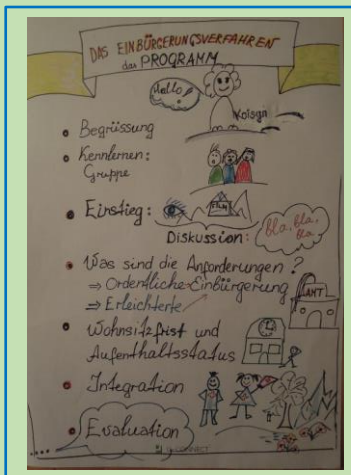 DAS EINBÜRGERUNGSVERFAHREN
das PROGRAMM
Hello!
Kolsgn
• Begrüssung
• Kennlernen:
Gruppe
• Einstieg:
FILM
Diskussion:
bla, bla,
bla
• Was sind die Anforderungen?
⇒ Ordentliche Einbürgerung
⇒ Erleichterte
AMT
• Wohnsitzfrist und
Aufenthaltsstatus
• Integration
• Evaluation